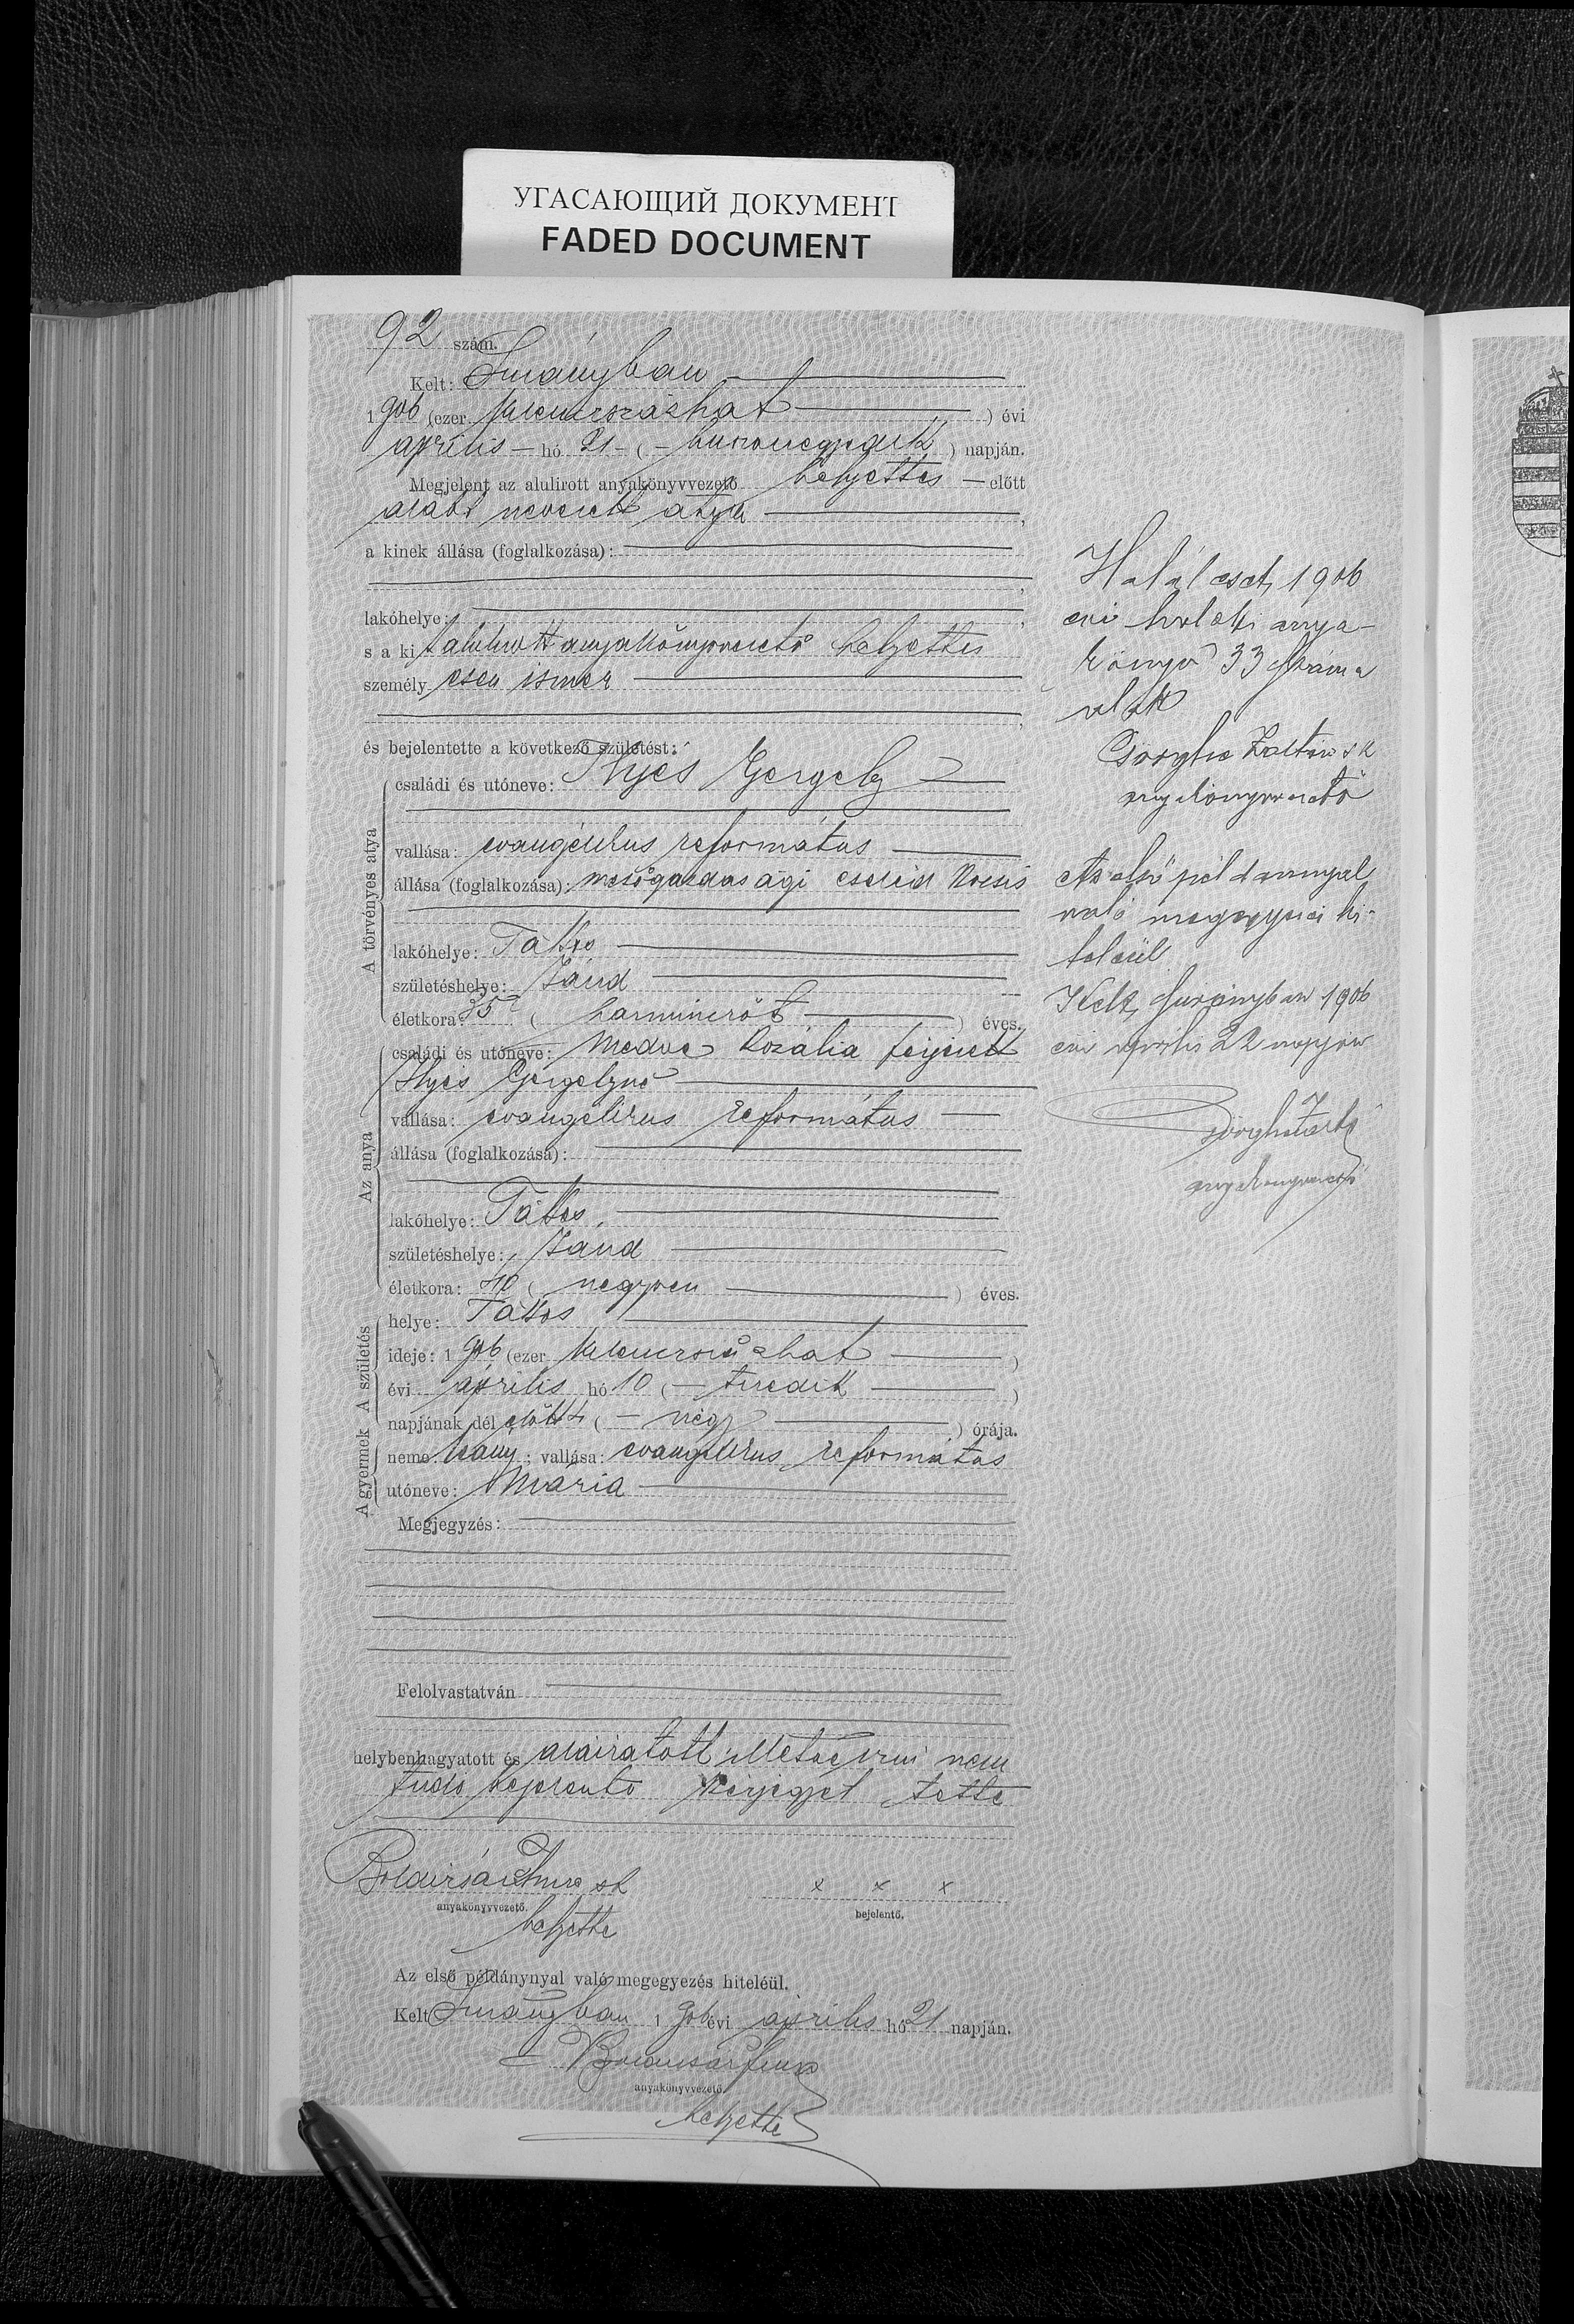 УГАСАЮЩИЙ ДОКУМЕНТ
FADED DOCUMENT
92 szám.
Kelt: Surányban
1906 (ezer kilenczszázhat) évi
április hó 21 (huszonegyedik) napján.
Megjelent az alulirott anyakönyvvezető helyettes előtt
alább nevezett atya,
a kinek állása (foglalkozása):
lakóhelye:
s a kit alulirott anyakönyvvezető helyettes
személyesen ismer
és bejelentette a következő születést:
A törvényes atya
családi és utóneve: Illyés Gergely
vallása: evangélikus református
állása (foglalkozása): mezőgazdasági cseléd kocsis
lakóhelye: Tákos
születéshelye: Jánd
életkora: 35 (harminczöt) éves.
Az anya
családi és utóneve: Medve Rozália férjezett
Illyés Gergelyné
vallása: evangélikus református
állása (foglalkozása):
lakóhelye: Tákos,
születéshelye: Jánd
életkora: 40 (negyven) éves.
A születés
helye: Tákos
ideje: 1906 (ezer kilenczszázhat)
évi április hó 10 (tizedik)
napjának dél előtt 4 (négy) órája.
A gyermek
neme: leány; vallása: evangélikus református
utóneve: Mária
Megjegyzés:
Felolvastatván
helybenhagyatott és aláiratott illetve irni nem
tudó bejelentő kézjegyet tette
Imre sk
anyakönyvvezető.
helyettes
x x x
bejelentő.
Az első példánynyal való megegyezés hiteléül.
Kelt Surányban 1906 évi április hó 21 napján.
anyakönyvvezető.
helyettes
Halál eset, 1906
évi halotti anya-
könyv 33 száma
alatt
Zoltán sk
anyakönyvvezető
Az első példánnyal
való megegyezés hi-
teleül
Kelt, Surányban 1906
évi április 22 napján
anyakönyvvezető